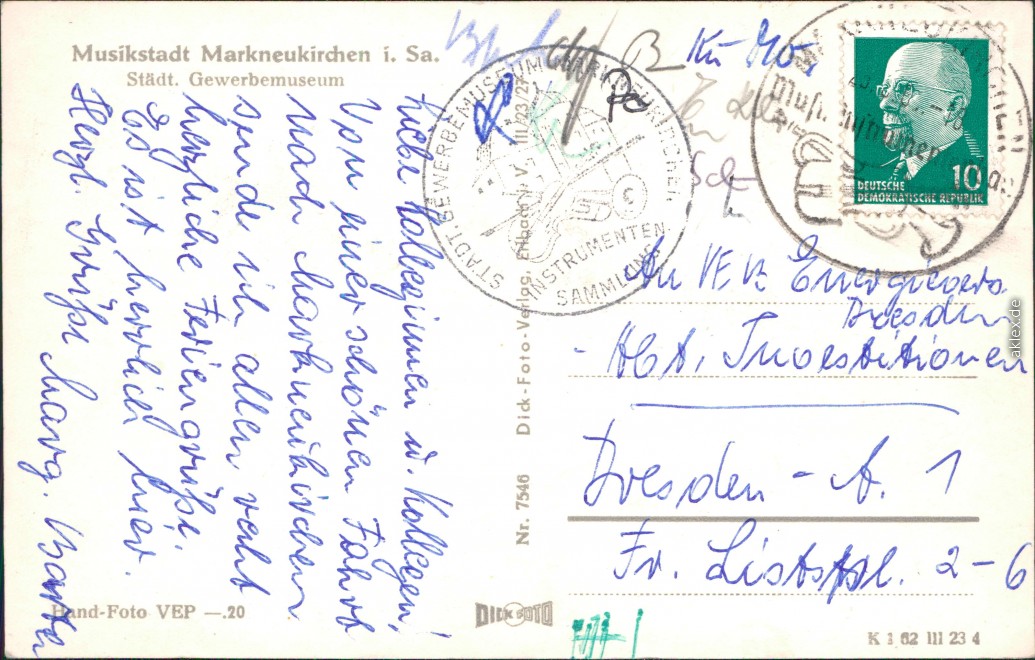 Musikstadt Markneukirchen i. Sa.
Städt. Gewerbemuseum
Liebe Kolleginnen u. Kollegen!
Von einer schönen Fahrt
nach Markneukirchen
sende ich allen recht
herzliche Feriengrüße.
Es ist herrlich hier.
Herzl. Grüße Marg.
Hand-Foto VEP —.20
Nr. 7546 Dick-Foto-Verlag, Erlbach i. V. III/23/27
STÄDT. GEWERBEMUSEUM MARKNEUKIRCHEN
INSTRUMENTEN
SAMMLUNG
B Ku
DEUTSCHE
DEMOKRATISCHE REPUBLIK
10
An VEB Energievers.
Dresden
- Abt. Investitionen
Dresden - A. 1
Fr. Listpl. 2-6
DICK FOTO
K 1 62 III 23 4
akpool.de